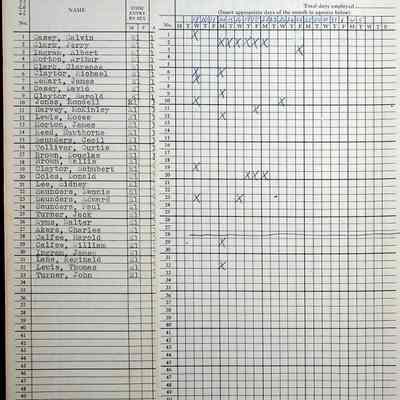 Total days employed
NAME
TIME ENTRY BY SEX
(Insert appropriate date of the month in squares below)
No.
M F
No. M T W T F M T W T F M T W T F M T W T F M T W T F
1 Casey, Calvin
2 Clark, Jerry
3 Ingram, Albert
4 Horton, Arthur
5 Clark, Clarence
6 Claytor, Michael
7 Eckart, James
8 Casey, David
9 Claytor, Harold
10 Jones, Rondell
11 Harvey, McKinley
12 Lewis, Moses
13 Horton, James
14 Reed, Hawthorne
15 Saunders, Cecil
16 Tolliver, Curtis
17 Brown, Douglas
18 Brown, Tellis
19 Claytor, Schubert
20 Coles, Donald
21 Lee, Sidney
22 Saunders, Dennis
23 Saunders, Edward
24 Saunders, Paul
25 Turner, Jack
26 Syms, Walter
27 Akers, Charles
28 Calfee, Harold
29 Calfee, William
30 Ingram, James
31 Lane, Reginald
32 Lewis, Thomas
33 Turner, John